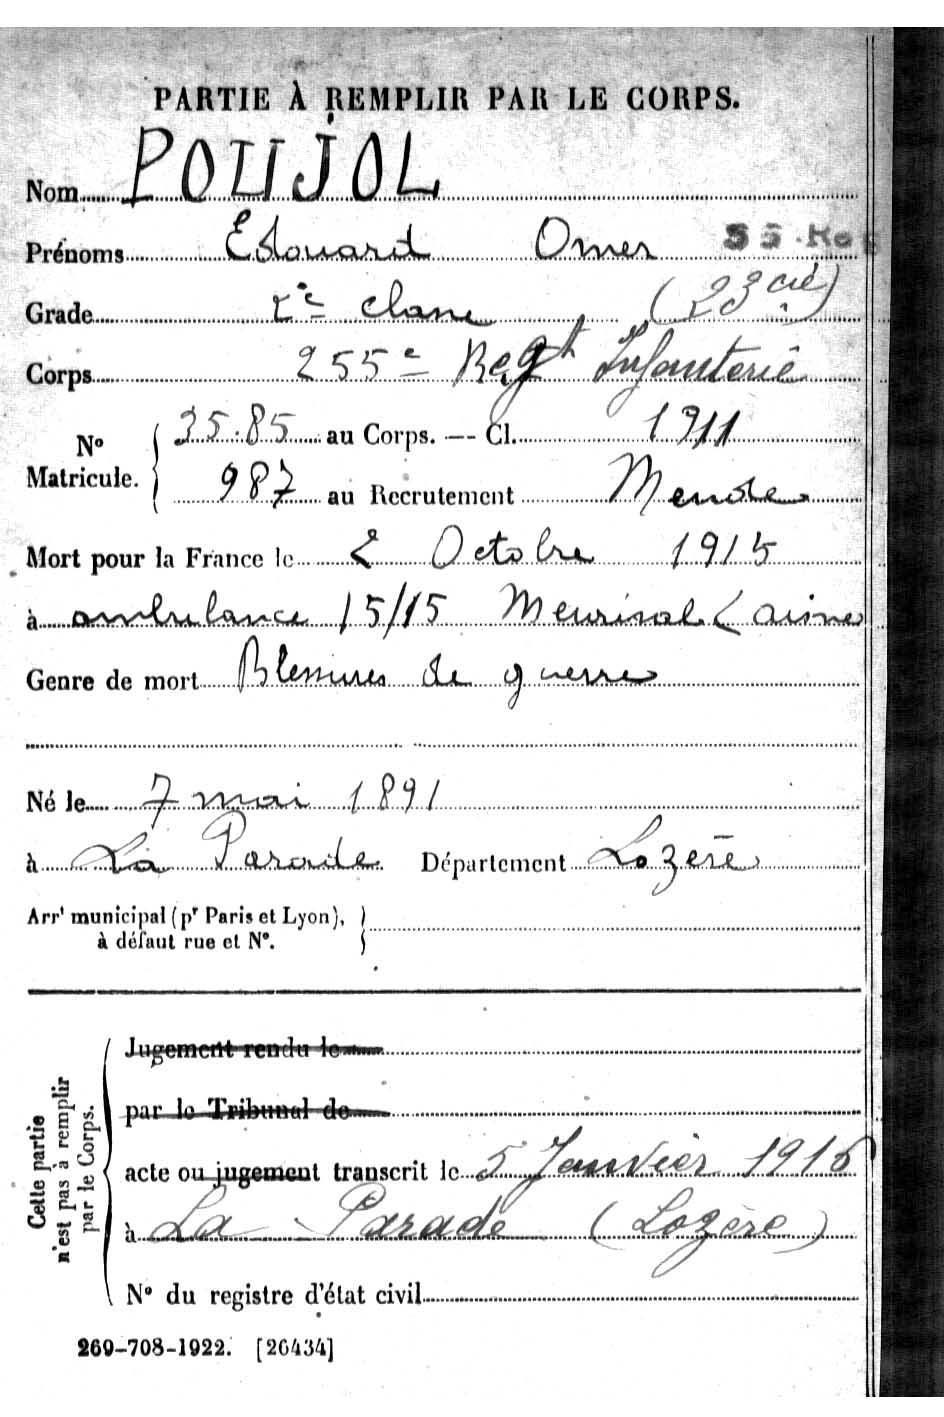 PARTIE À REMPLIR PAR LE CORPS.
Nom POUJOL
Prénoms Edouard Omer
Grade 2e classe (23e cie)
Corps 255e Regt Infanterie
No Matricule. 3585 au Corps. — Cl. 1911
987 au Recrutement Mende
Mort pour la France le 2 Octobre 1915
à ambulance 15/15 Meurival (aisne
Genre de mort Blessures de guerre
Né le 7 mai 1891
à La Parade Département Lozère
Arrt municipal (pr Paris et Lyon),
à défaut rue et No.
Cette partie n'est pas à remplir par le Corps.
Jugement rendu le
par le Tribunal de
acte ou jugement transcrit le 5 Janvier 1916
à La Parade (Lozère)
No du registre d'état civil
269-708-1922. [26434]